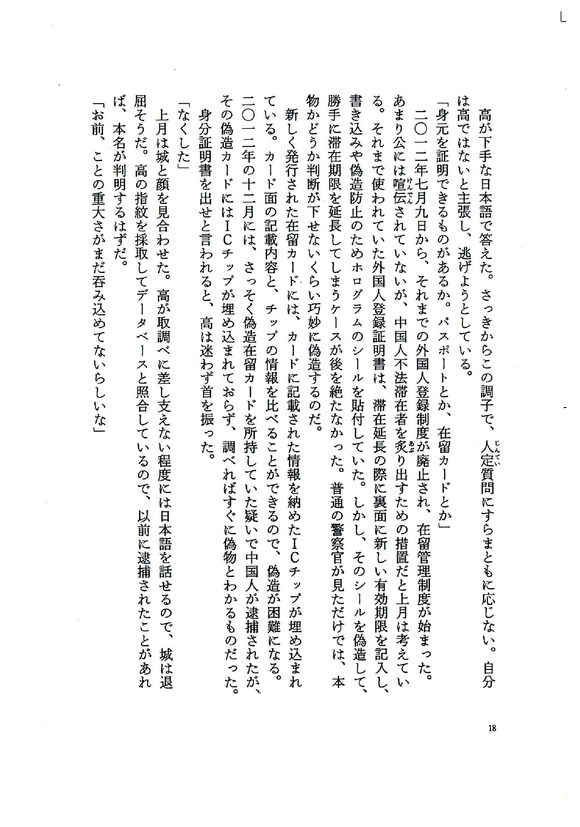 L
高が下手な日本語で答えた。さっきからこの調子で、人定質問にすらまともに応じない。自分
じんてい
は高ではないと主張し、逃げようとしている。
「身元を証明できるものがあるか。パスポートとか、在留カードとか」
二〇一二年七月九日から、それまでの外国人登録制度が廃止され、在留管理制度が始まった。
あまり公には喧伝されていないが、中国人不法滞在者を炙り出すための措置だと上月は考えてい
けんでん
あぶ
る。それまで使われていた外国人登録証明書は、滞在延長の際に裏面に新しい有効期限を記入し、
書き込みや偽造防止のためホログラムのシールを貼付していた。しかし、そのシールを偽造して、
勝手に滞在期限を延長してしまうケースが後を絶たなかった。普通の警察官が見ただけでは、本
物かどうか判断が下せないくらい巧妙に偽造するのだ。
新しく発行された在留カードには、カードに記載された情報を納めたICチップが埋め込まれ
ている。カード面の記載内容と、チップの情報を比べることができるので、偽造が困難になる。
二〇一二年の十二月には、さっそく偽造在留カードを所持していた疑いで中国人が逮捕されたが、
その偽造カードにはICチップが埋め込まれておらず、調べればすぐに偽物とわかるものだった。
身分証明書を出せと言われると、高は迷わず首を振った。
「なくした」
上月は城と顔を見合わせた。高が取調べに差し支えない程度には日本語を話せるので、城は退
屈そうだ。高の指紋を採取してデータベースと照合しているので、以前に逮捕されたことがあれ
ば、本名が判明するはずだ。
「お前、ことの重大さがまだ呑み込めてないらしいな」
18